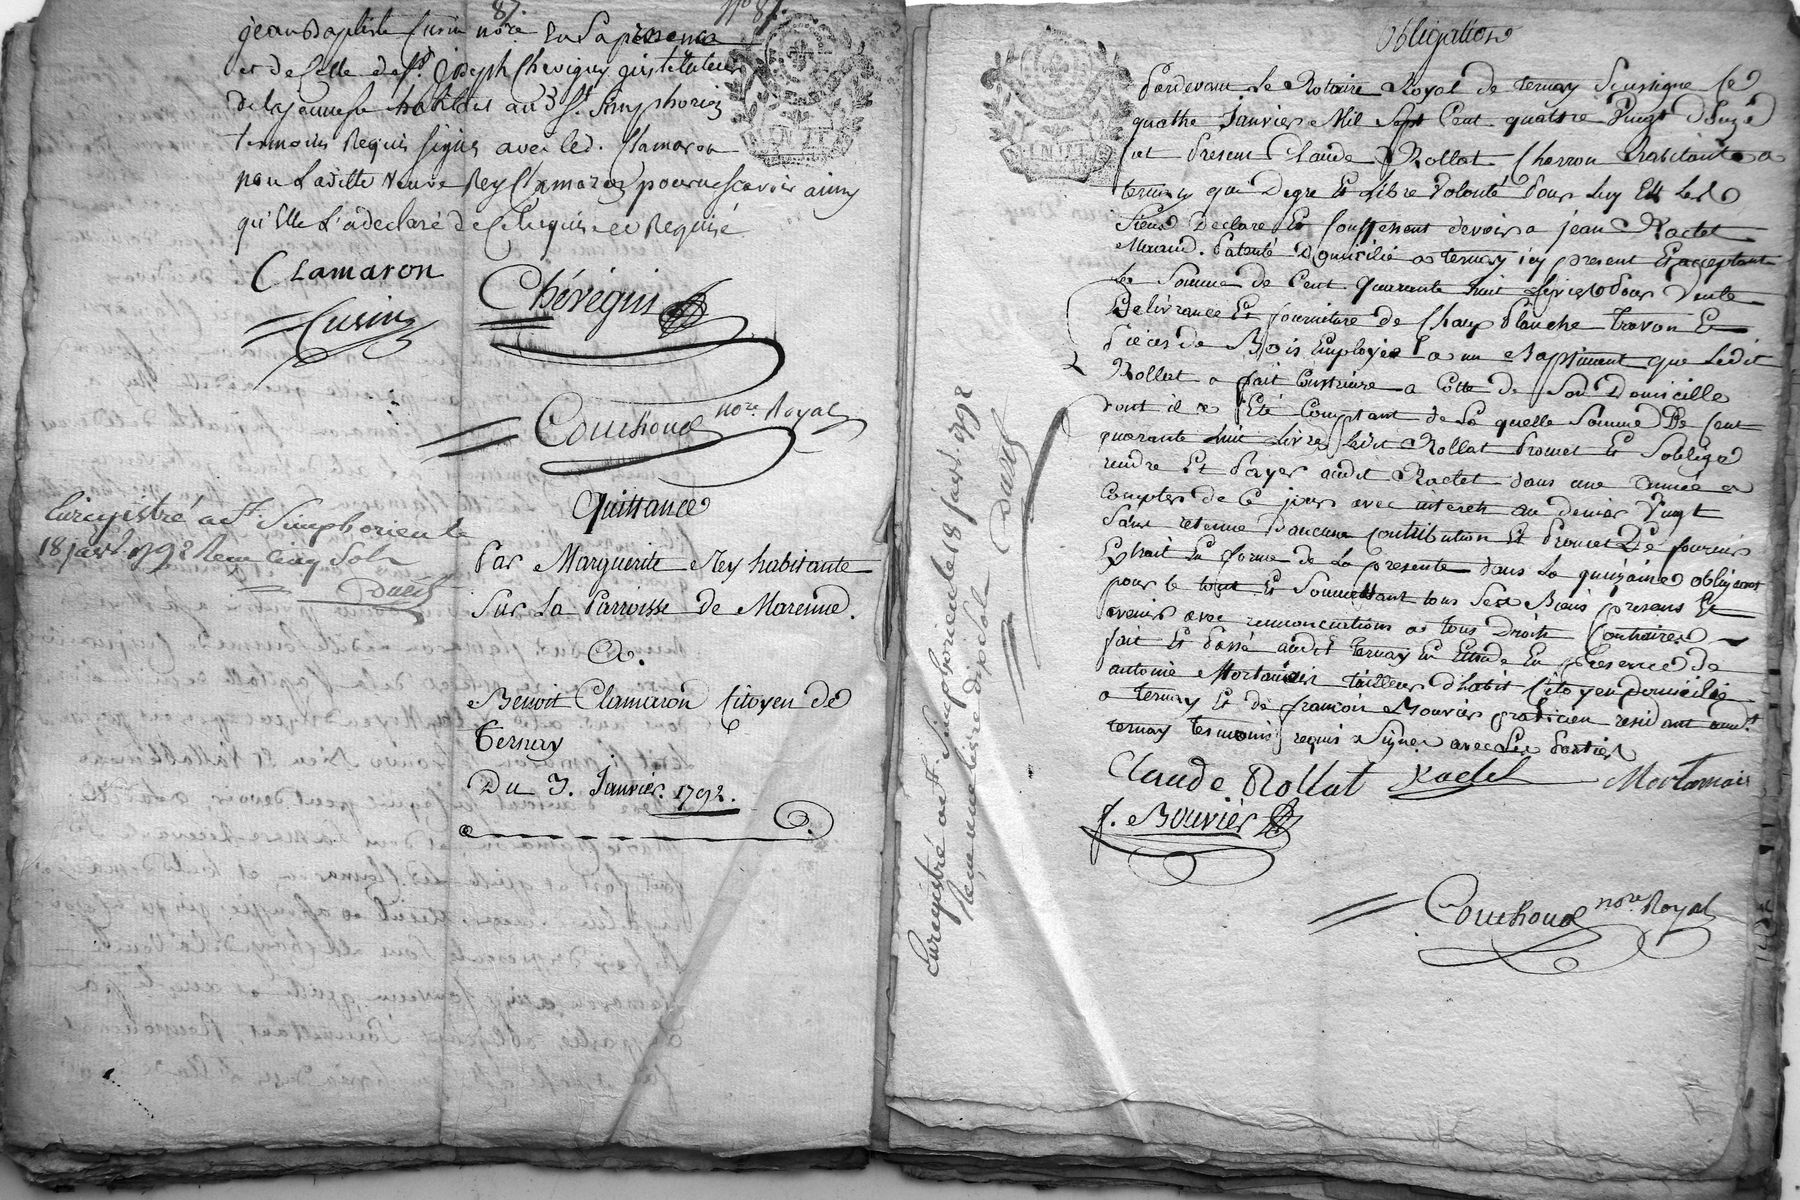 87. No 87.
jean Baptiste Cusin nore En Sa presence
et de Celle de Sr. Joseph Chevigny instituteur
de la jeunesse habitant au d. St. Simphorien
temoins Requis Signés avec led. Clamaron
non Laditte veuve Rey Clamaron pour ne scavoir ainsy
qu'Elle L'a declaré de Ce Enquise et Requise
Clamaron
Chévégin
Cusin
Couchoud nore Royal
Quittance
Par Marguerite Rey habitante
Sur La Parroisse de Marenne.
a.
Benoit Clamaron Citoyen de
Ternay
Du 3. Janvier. 1792.
Enregistré a St. Simphorien le
18 janv. 1792 Reçu cinq Sols
Obligation
Pardevant Le Notaire Royal de Ternay Soussigné Ce
quatre Janvier Mil Sept Cent quatre Vingt Douze
fut Présent Claude Rollat Charron habitant a
ternay qui De gré Et Libre Volonté Pour Luy Et Les
Siens Déclare Et Confessent devoir a jean Ractet
Marand. Patenté Domicilié a ternay icy present Et acceptant
La Somme de Cent Quarante huit Livres Pour Vente
Délivrance Et fourniture de Chaux blanche Travon Et
Pièces de Bois Employés a un Baptiment que Ledit
Rollat a fait Construire a Cotte de Son Domicille
dont il a Eté Comptant de La quelle Somme De Cent
quarante huit Livres Ledit Rollat Promet Et S'oblige
rendre Et Payer audit Ractet dans une année a
Compter de Ce jour avec intérêt au denier Vingt
Sans retenue D'aucune Contribution Et Promet De fournir
Extrait En forme de La presente dans La quinzaine obligeant
pour le tout Et Soumettant tous Ses Biens presens Et
avenir avec rennonciations a tous Droits Contraires
fait Et Passé audit ternay En Etude En Présence de
antoine Mortamais tailleur d'habit Citoyen domicilié
a ternay Et de françois Bouvier praticien residant aud.t
ternay temoins requis Signés avec Les Parties
Claude Rollat Ractet Mortamais
f. Bouvier
Couchoud nore Royal
Enregistré a St. Simphorien le 18 janv. 1792
Reçu une livre dix sols